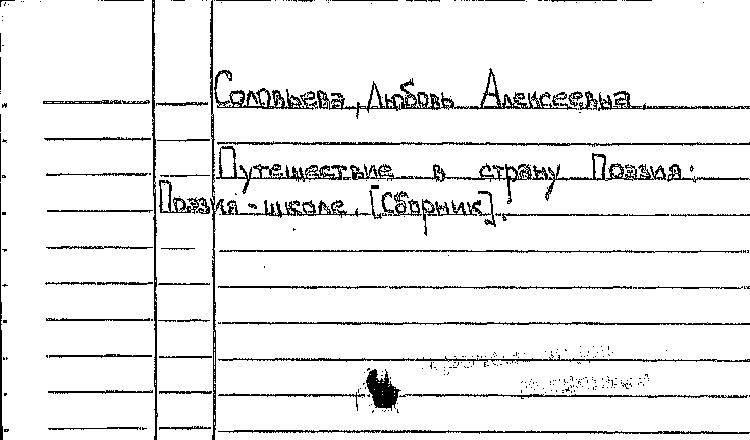 Соловьева, Любовь Алексеевна.
Путешествие в страну Поэзия:
Поэзия - школе. [Сборник].